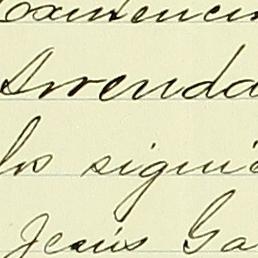 Arrenda
los signie
Jesús Ga